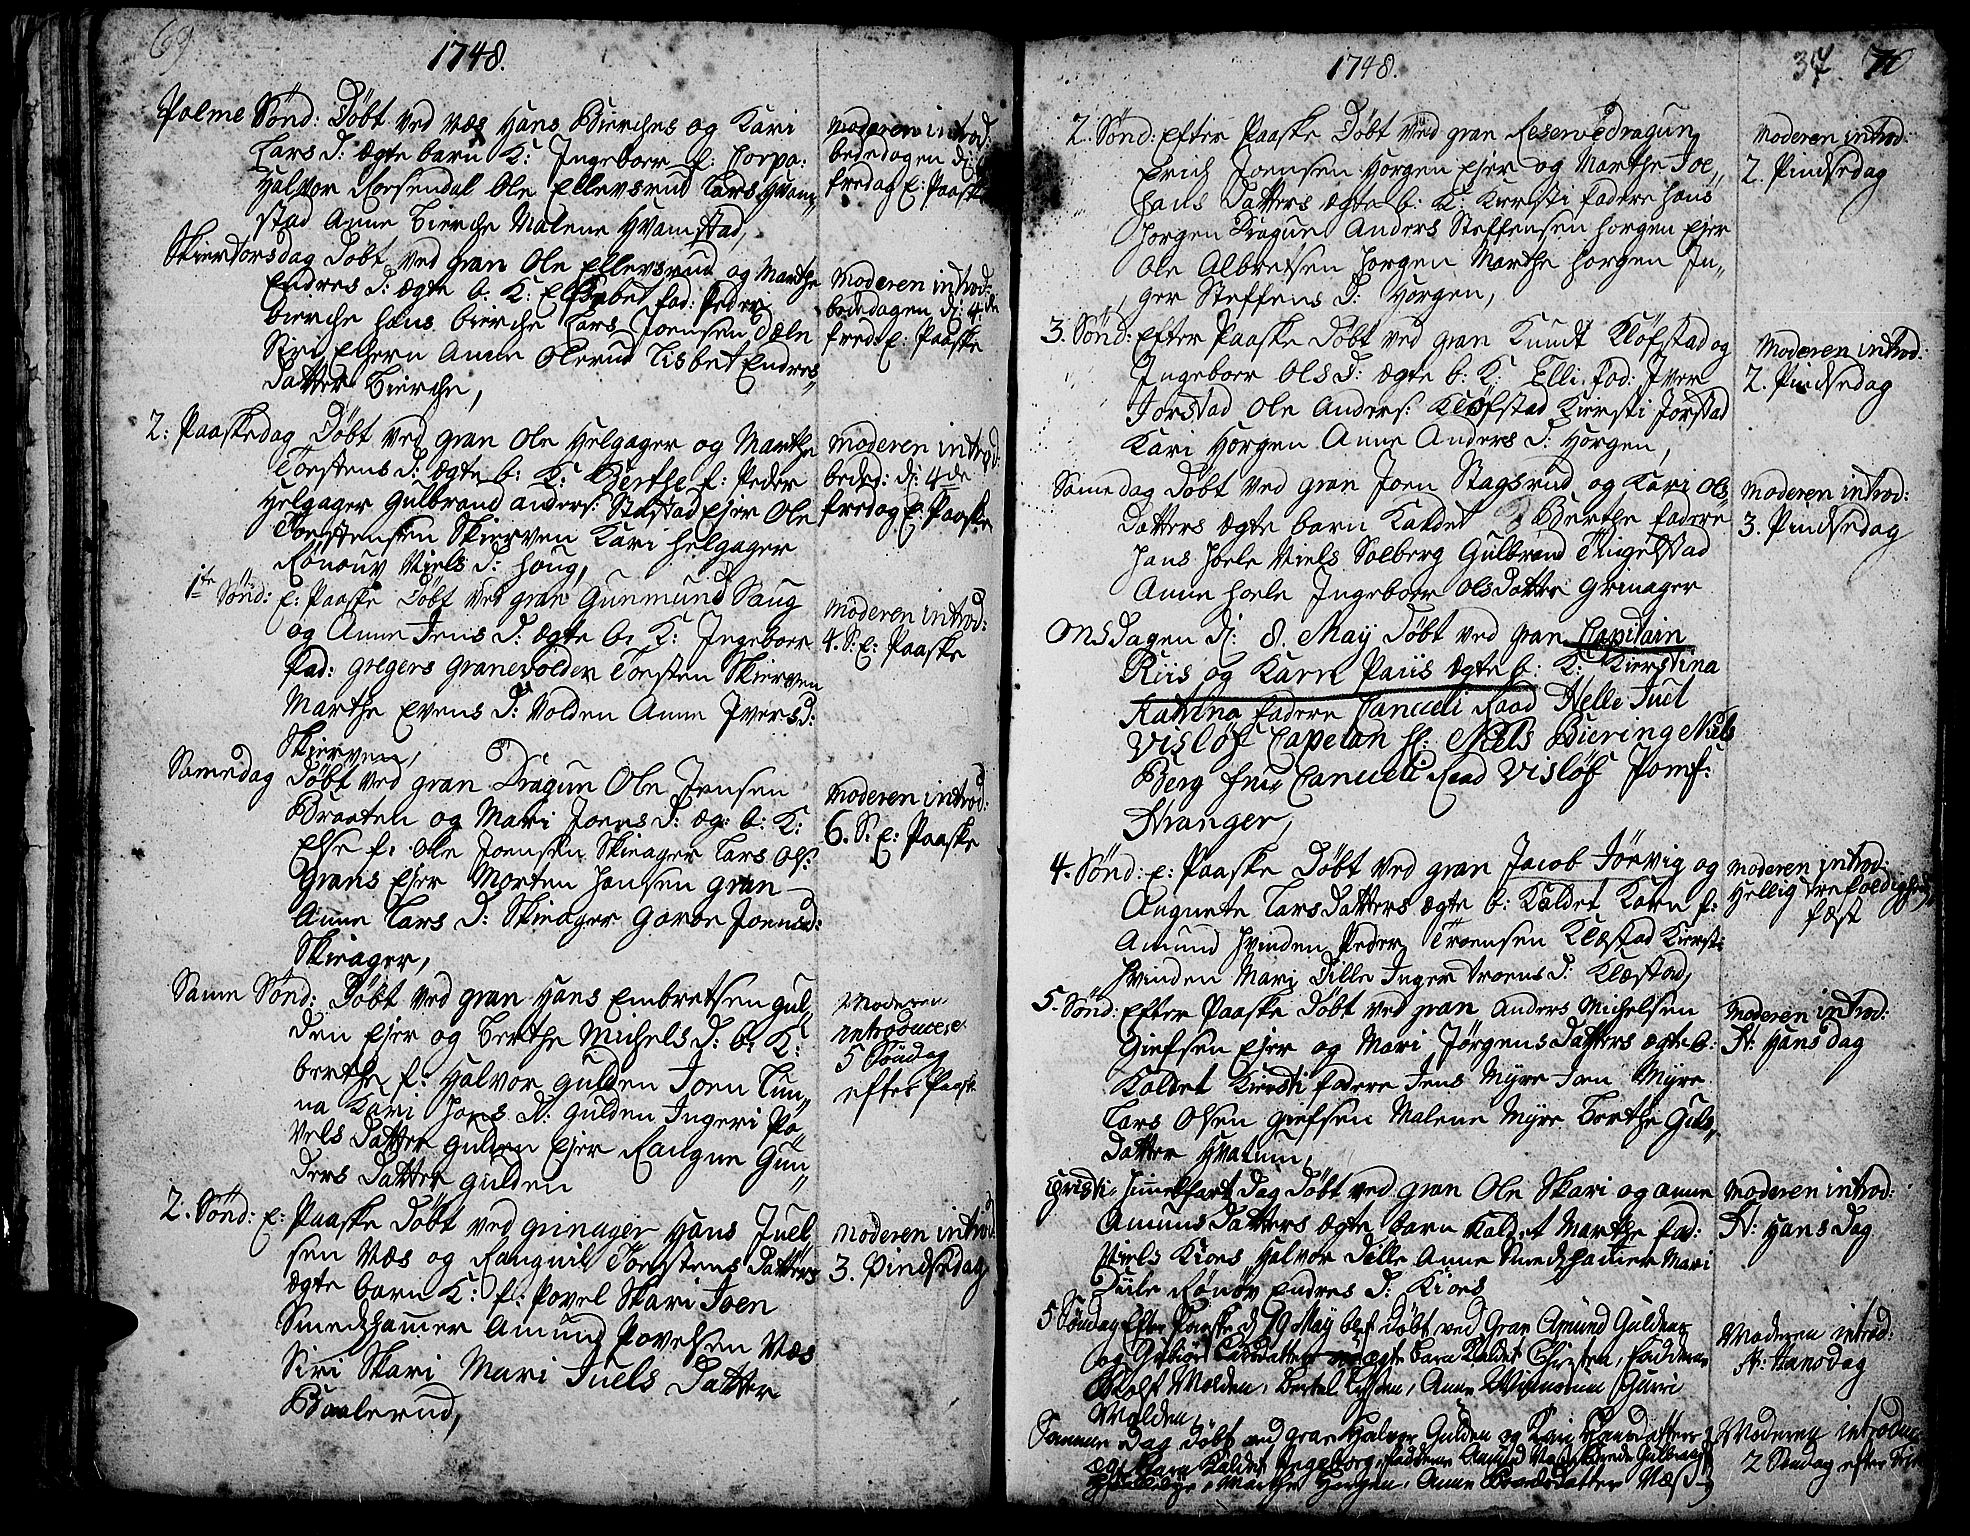 69
1748.
Palme Sønd: Døbt ved Næs Hans Bierches og Kari
Lars D: ægte barn K: Ingeboer f: Corpo:
Halvor Rosendal Ole Ellevsrud Lars Hvam„
stad Anne Bierche Malene Hvamstad,
Moderen introd:
bededagen di: 4
fredag E: Paaske
Skiertorsdag Døbt ved gran Ole Ellevsrud og Marthe
Endres D: ægte b: K: Elisabet fad: Peder
bierche Hans bierche Lars Joensen Dæln
Siri Ehern Anne Olerud Lisbet Endres„
Datter Bierche,
Moderen introd:
bededagen di: 4de
fred: E: Paaske
2: Paaskedag Døbt ved gran Ole Helgager og Marthe
Torstens D: ægte b: K: Berthe f: Peder
Helgager Gulbrand anders: Stastad Ejer Ole
Torstensen Skierven Kari Helgager
Rønouv Niels D: Houg,
Moderen introd:
beded: di: 4de
fredag E: Paaske
1te Sønd: E: Paaske Døbt ved gran Gunmund Saug
og Anne Jens D: ægte b: K: Ingeboer
fad: gregers granevolden Torsten Skierven
Marthe Evens D: Volden Anne Ivers D:
Skierven,
Moderen introd:
4. S: E: Paaske
Samedag Døbt ved gran Dragun Ole Jensen
Braaten og Mari Joens D: æg: b: K:
Else f: Ole Joensen Skieager Lars Ols:
Grans Ejer Morten Hansen gran
Anne Lars D: Skieager Goroe Joens D:
Skieager,
Moderen introd:
6. S: E: Paaske
Samme Sønd: Døbt ved gran Hans Embretsen gul„
den Ejer og Berthe Michels D: b: K:
berthe f: Halvor gulden Joen Lun„
na Kari Hans D: gulden Ingeri Po„
vels Datter gulden Ejer Rangne Gun„
ders Datter gulden
Moderen
introducere
5 Søndag
efter Paask
2. Sønd: E: Paaske Døbt ved grinager Hans Juel„
sen Næs og Rangnil Torstens Datters
ægte barn K: f: Povel Skari Joen
Smedshamer Amund Povelsen Næs
Siri Skari Mari Juels Datter
Baalerud,
Moderen introd:
3. Pindsedag
1748.
37 70
2. Sønd: Efter Paaske Døbt ved gran Reservedragun
Erich Joensen Horgen Ejer og Marthe Joe„
hans Datters ægte b: K: Kiersti fadere Hans
Horgen Dragun Anders Steffensen Horgen Ejer
Ole Albretsen Horgen Marthe Horgen In„
ger Steffens D: Horgen,
Moderen introd:
2. Pindsedag
3. Sønd: Efter Paaske Døbt ved gran Knudt Kløfstad og
Ingeboer Ols D: ægte b: K: Elli fad: Iver
Jorstad Ole Anders: Kløfstad Kiersti Jorstad
Kari Horgen Anne Anders D: Horgen,
Moderen introd:
2. Pindsedag
Samedag Døbt ved gran Joen Stagsrud og Kari Ols„
Datters ægte barn Kaldet Berthe fadere
Hans Hoele Niels Solberg Gulbrand Tingelstad
Anne Hoele Ingeboer Olsdatter grinager
Moderen introd:
3. Pindsedag
Onsdagen di: 8. May Døbt ved gran Capitain
Riis og Karn Paiis ægte b: K: Kierstina
Katrina fadere Cancelli Raad Helle Juel
Visløf Capelan Hr: Niels Biering Niels
Berg frue Cancelli Raad Visløf Jomf:
Stranger,
4. Sønd: E: Paaske Døbt ved gran Jacob Jørvig og
Angnete Larsdatters ægte b: Kaldet Karn f:
Amund Hvinden Peder Troensen Klæstad Kiersti
Hvinden Mari Dille Inger Troens D: Klæstad,
Moderen introd:
Hellig trefoldigheds
fæst
5. Sønd: Efter Paaske Døbt ved gran Anders Michelsen
Giefsen Ejer og Mari Jørgens Datters ægte b:
Kaldet Kiersti fadere Jens Myre Joen Myre
Lars Olsen Giefsen Malene Myre Berthe Guls„
datter Hvatum,
Moderen introd:
St: Hansdag
Christi Himelfart Dag Døbt ved gran Ole Skari og anne
Amunsdatters ægte barn Kaldet Marthe fad:
Niels Kioes Halvor Dille Anne Smedshamer Mari
Dille Rønøv Endres D: Kioes
Moderen introd:
St: Hansdag
5 Søndag Efter Paaske d 19 May blef Døbt ved Gran Amund Gulden
og Larsdatters ægte barn Kaldet Christen, faddere
Rolf Molden, Bertel Anne Guri
Molden,
Moderen introd:
St: Hansdag
Samme Dag Døbt ved gran Halvor Gulden og Kari Hansdatters
ægte Barn Kaldet Ingeborg, faddere Amund
Marthe Horgen, Anne Næss
Moderen introduc
2 Søndag efter